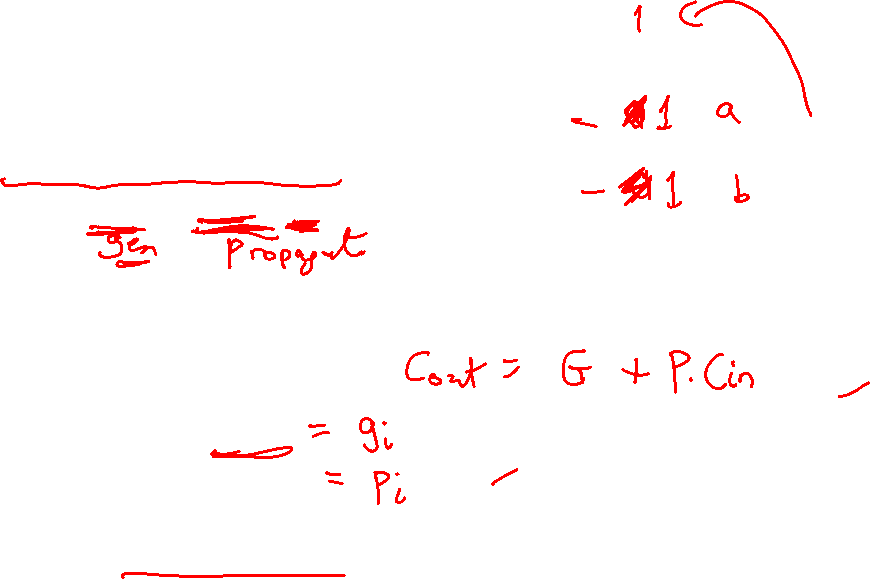 1
- 1 a
- 1 b
gen propagat
Cout = G + P.Cin
= gi
= pi